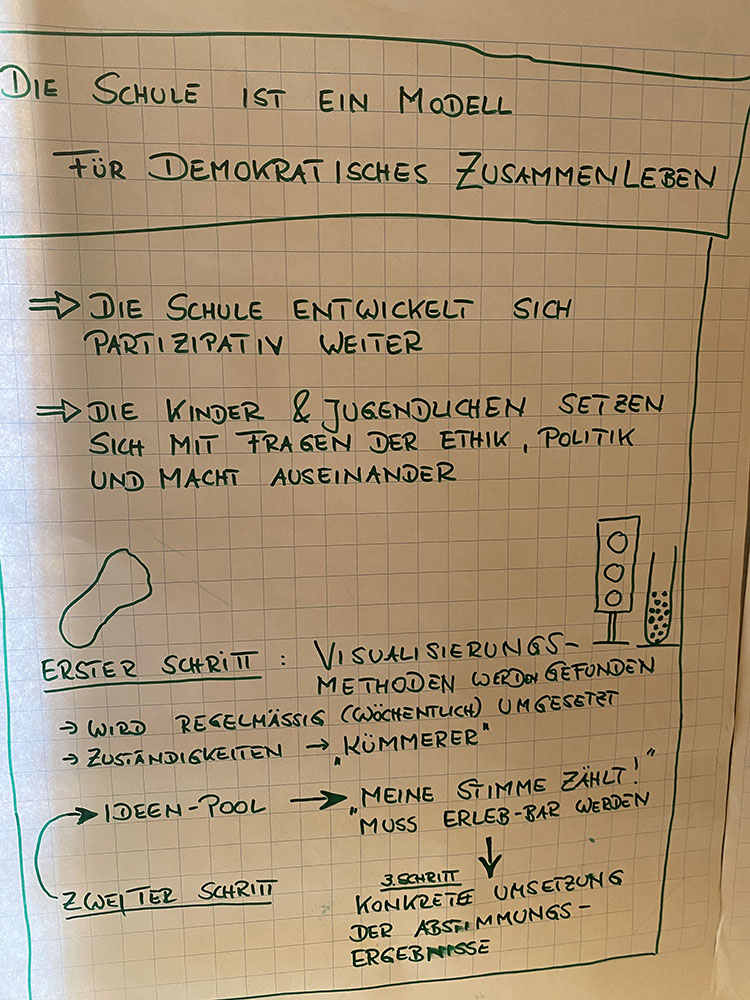 DIE SCHULE IST EIN MODELL
FÜR DEMOKRATISCHES ZUSAMMENLEBEN
⇒ DIE SCHULE ENTWICKELT SICH
PARTIZIPATIV WEITER
⇒ DIE KINDER & JUGENDLICHEN SETZEN
SICH MIT FRAGEN DER ETHIK, POLITIK
UND MACHT AUSEINANDER
ERSTER SCHRITT : VISUALISIERUNGS-
METHODEN WERDEN GEFUNDEN
→ WIRD REGELMÄSSIG (WÖCHENTLICH) UMGESETZT
→ ZUSTÄNDIGKEITEN → „KÜMMERER"
IDEEN-POOL → „MEINE STIMME ZÄHLT!"
MUSS ERLEB-BAR WERDEN
ZWEITER SCHRITT
3. SCHRITT
KONKRETE UMSETZUNG
DER ABSTIMMUNGS-
ERGEBNISSE